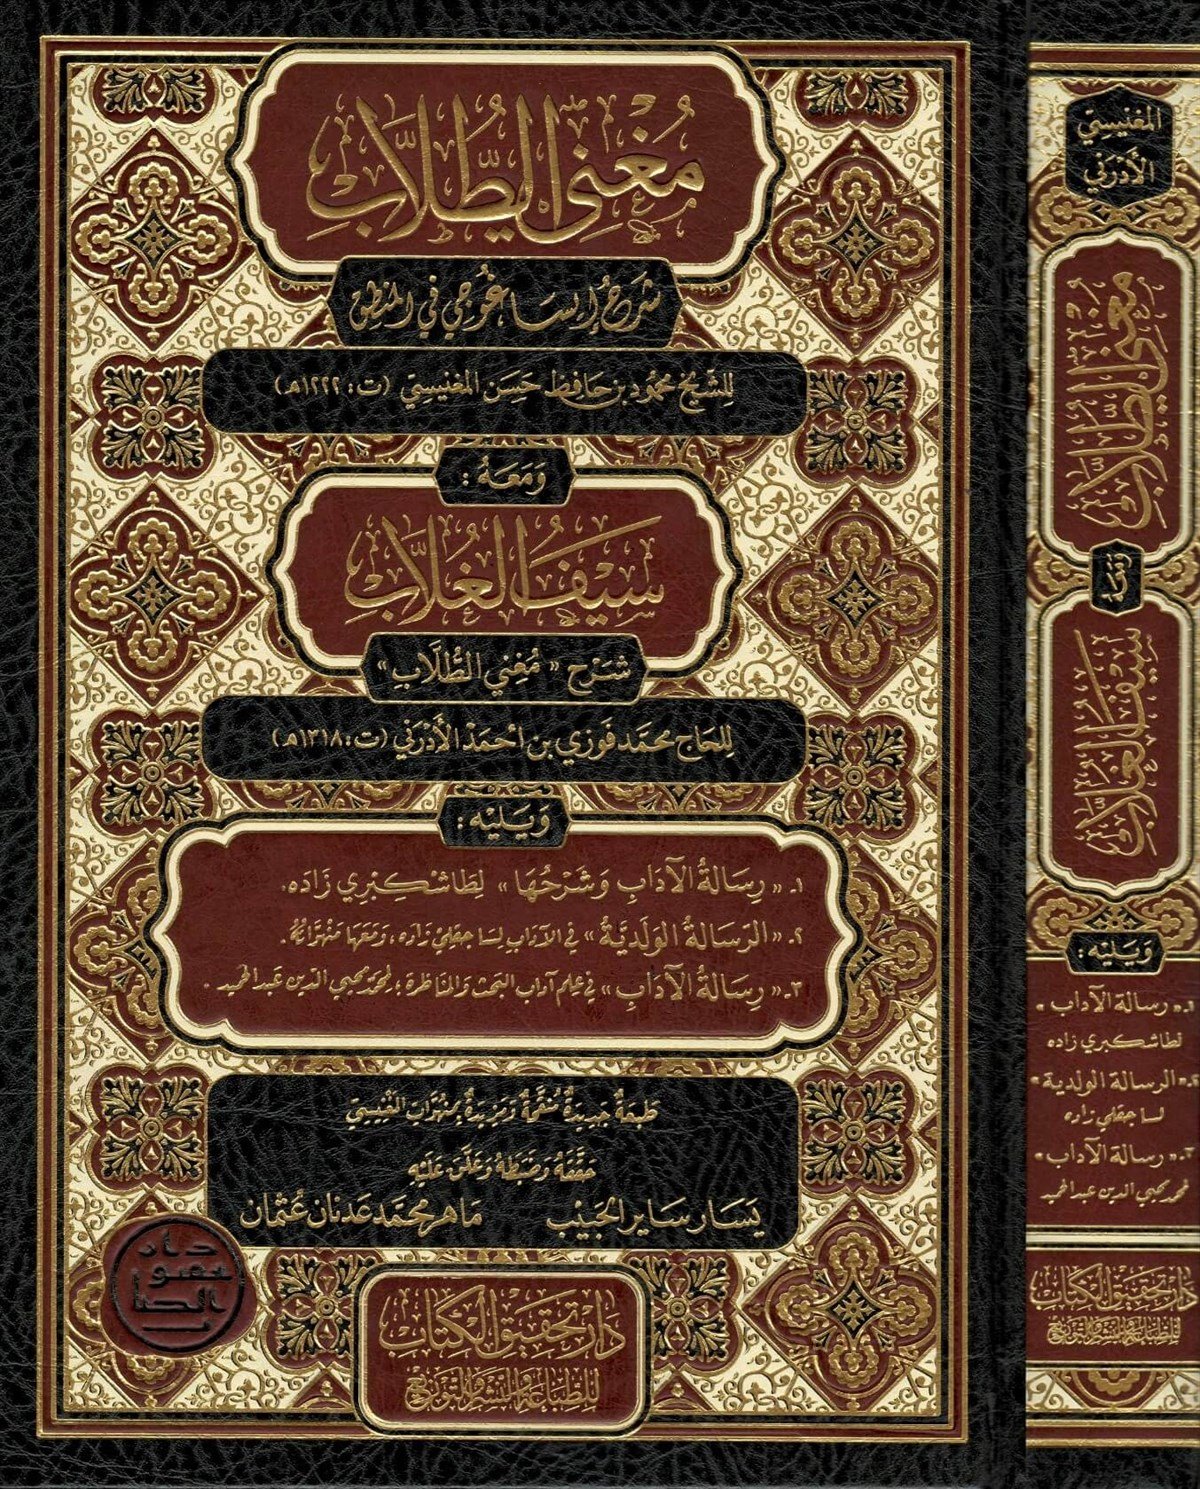 مُغْنِي الطُّلَّابِ
شَرْحُ إِيسَاغُوجِي فِي المَنْطِقِ
لِلشَّيْخِ مَحْمُود بن حَافِظ حَسَن المَغْنِيسِيّ (ت: ١٢٢٢هـ)
وَمَعَهُ:
سَيْفُ الغُلَّابِ
شَرْح «مُغْنِي الطُّلَّابِ»
لِلحَاجِّ مُحَمَّد فَوْزِي بن أَحْمَد الأَدَرْنِي (ت: ١٣١٨هـ)
وَيَلِيْهِ:
١ـ «رِسَالَةُ الآدَابِ وَشَرْحُهَا» لِطَاشْكُبْرِي زَادَه.
٢ـ «الرِّسَالَةُ الوَلَدِيَّةُ» فِي الآدَابِ لِسَاجَقْلِي زَادَه، وَمَعَهَا مَنْهُوَّاتُهُ.
٣ـ «رِسَالَةُ الآدَابِ» فِي عِلْمِ آدَابِ البَحْثِ وَالمُنَاظَرَةِ؛ لِمُحَمَّد مُحْيِي الدِّين عَبْد الحَمِيد.
طَبْعَةٌ جَدِيدَةٌ مُنَقَّحَةٌ وَمَزِيدَةٌ بِمَنْهُوَّاتِ المَغْنِيسِيّ
حَقَّقَهُ وَضَبَطَهُ وَعَلَّقَ عَلَيْهِ
يَسَار سَايِر الحَبِيب مَاهِر مُحَمَّد عَدْنَان عُثْمَان
دَار تَحْقِيقِ الكِتَاب
لِلطِّبَاعَةِ وَالنَّشْرِ وَالتَّوْزِيعِ
المَغْنِيسِيّ
الأَدَرْنِي
مُغْنِي الطُّلَّابِ
وَمَعَهُ
سَيْفُ الغُلَّابِ
وَيَلِيْه:
١ـ «رسالة الآداب»
لطاشكبري زاده
٢ـ «الرسالة الولدية»
لساجقلي زاده
٣ـ «رسالة الآداب»
لمحمد محيي الدين عبد الحميد
دَار تَحْقِيقِ الكِتَاب
لِلطِّبَاعَةِ وَالنَّشْرِ وَالتَّوْزِيعِ